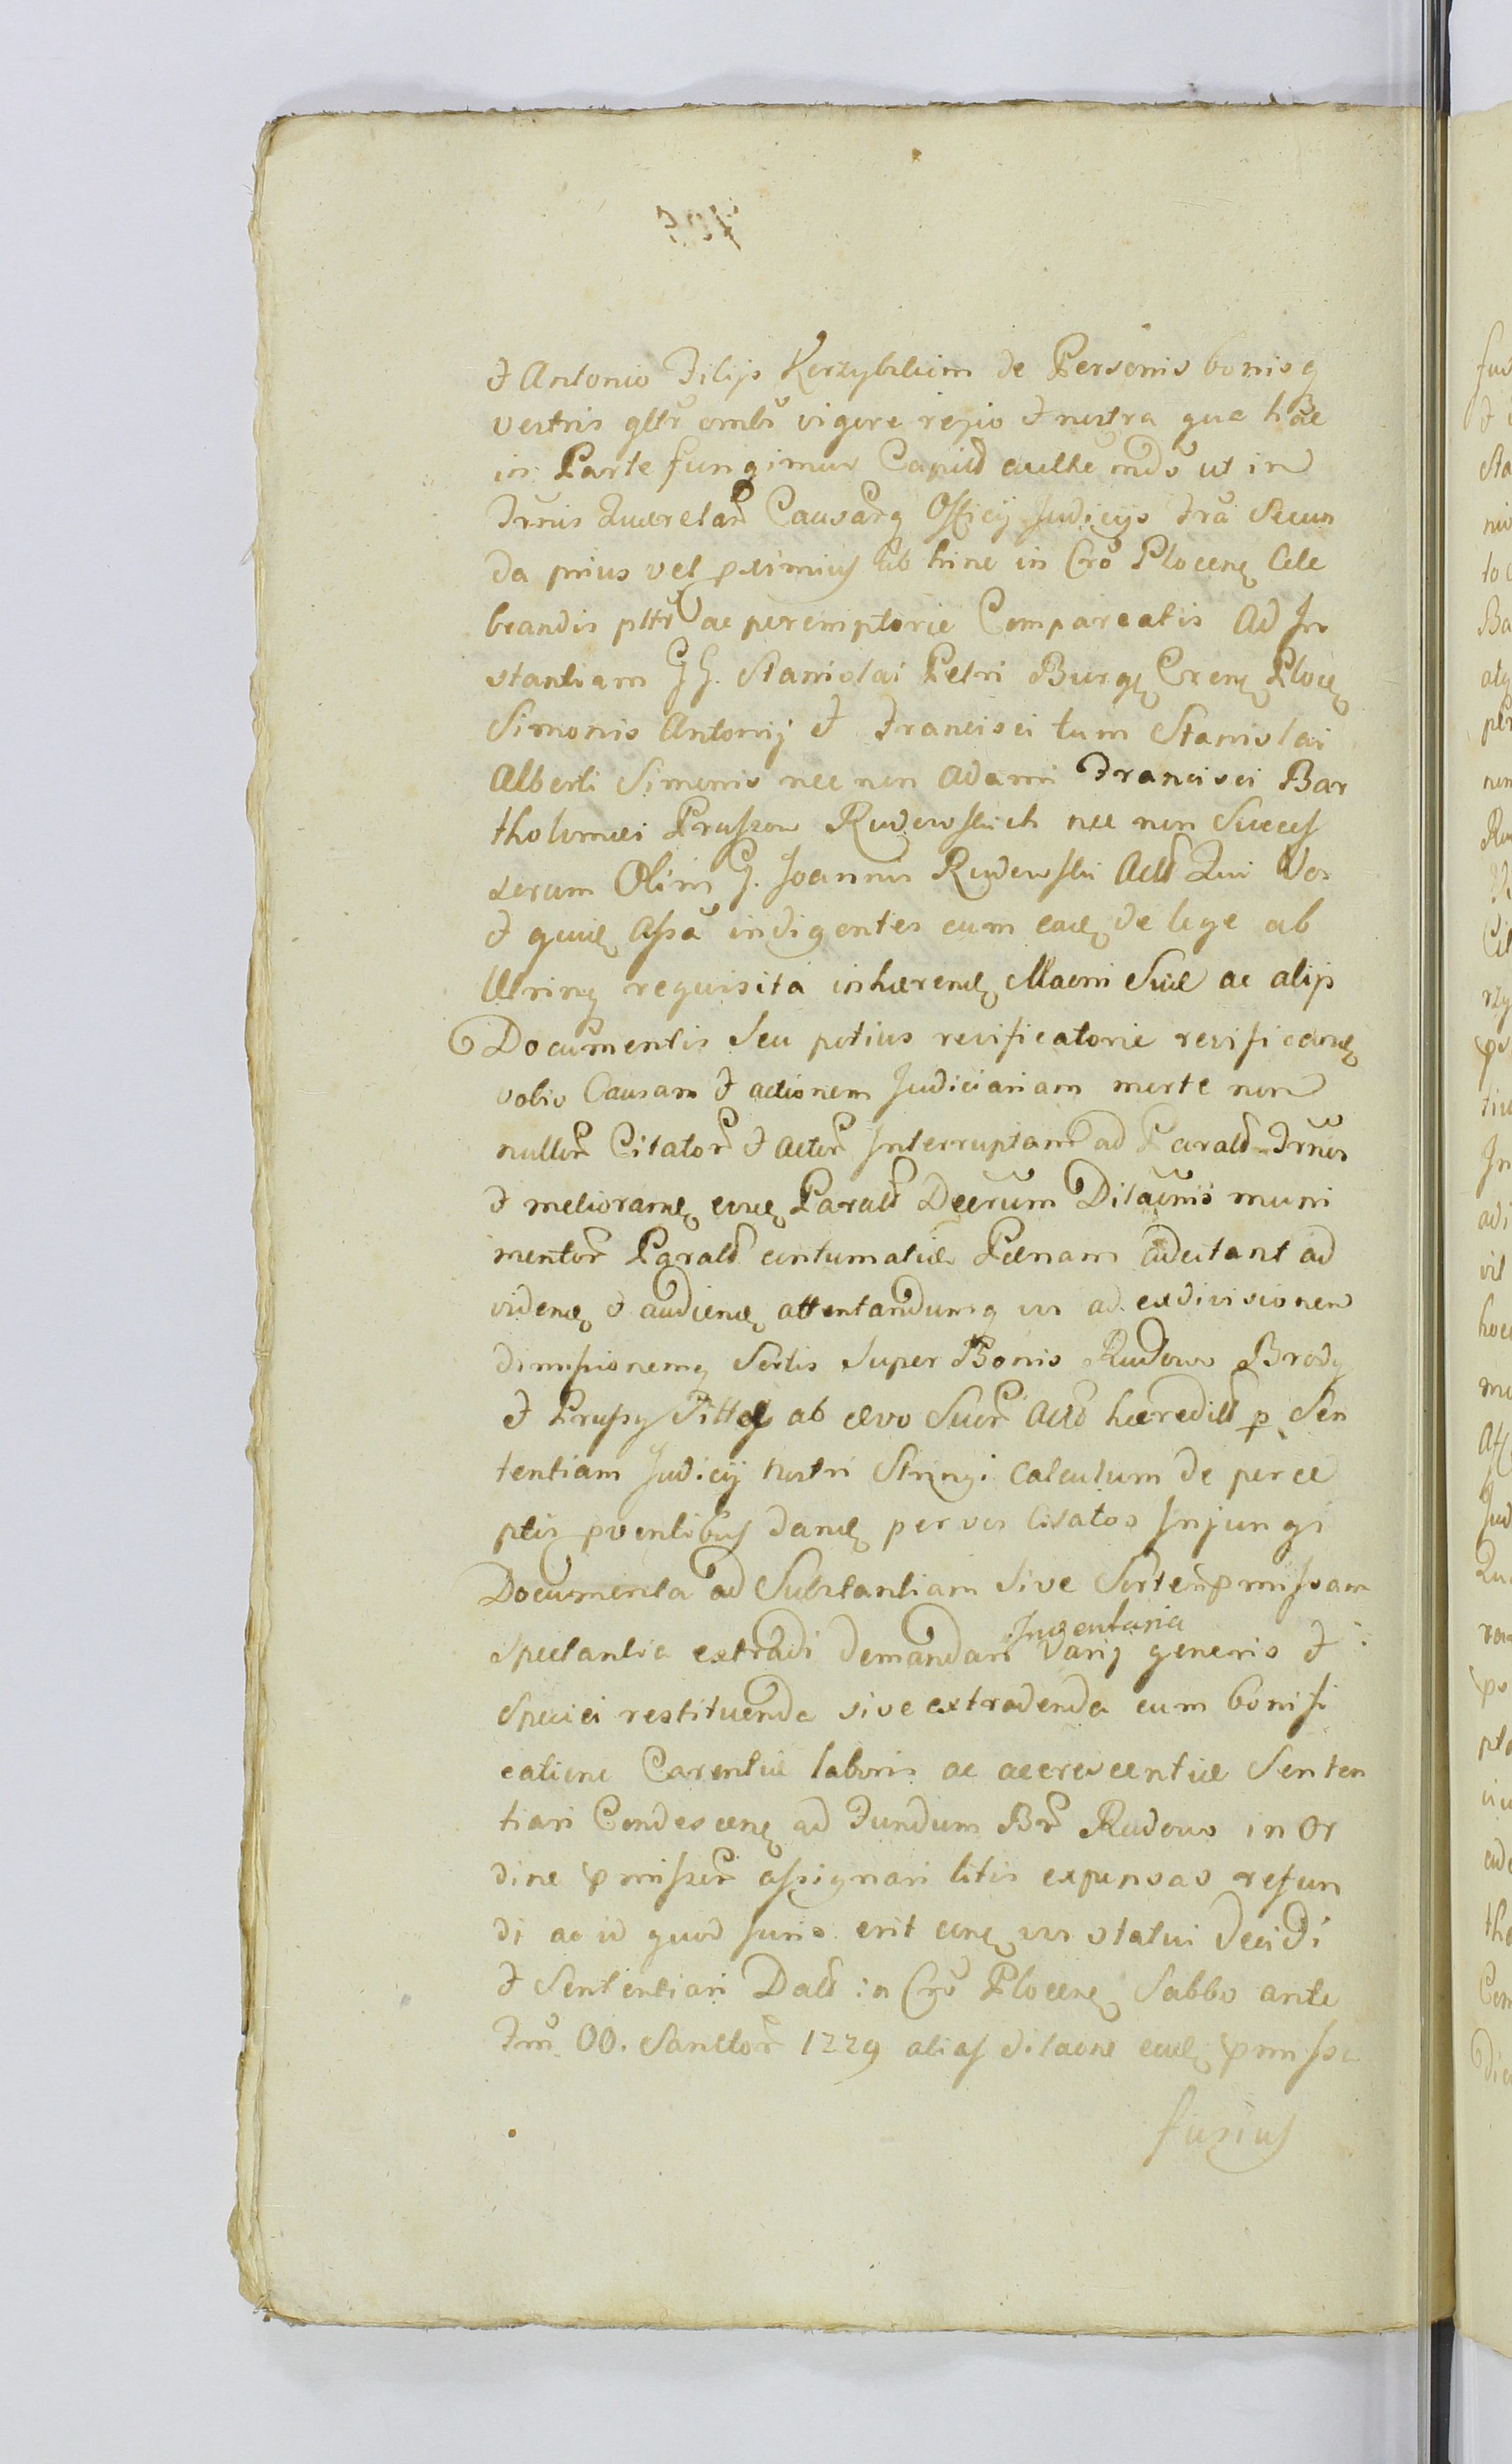 & Antonio Filijs Kerzyblicim de Personis bonisq
vestris gltr ombs vigore regio & nostra qua hac
in Parte fungimur Capild autte mds ut in
Trnis Querelar Causarq Officij Judicijs fra Secun
da prius vel proximius ab hinc in Cro Plocen Cele
brandis plltr ac peremptorie Compareatis Ad In
stantiam GG. Stanislai Petri Burg Plocen
Simonis Antonij & Francisci tum Stanislai
Alberti Simonis nec non Adami Francisci Bar
tholomei Prussow Rudowskich nec non Succes
sorum Olim G. Joannis Rudowski Actt Qui Vos
& assa indigentes eum de lege ab
requisita inhaerend suae ac alijs
Documentis Seu potius reificatorie reificand
vobis Causam & actionem Judiciariam morte non
nullor Citator & actor Interruptam ad Paratt Trnos
& meliorand Paratt Decrum Dilaonis muni
mentor Paratt contumatiae Paenam adcitant ad
vidend & audiend attentandumq vos ad exdivisionem
dimissionemq Sortis Super Bonis Rudowo Brody
& Prussy ab aevo Suor Actt haereditt p Sen
tentiam Judicij nostri Stringi Calculum de perce
ptis pventibus dand per vos Citatos Injungi
Documenta ad Substantiam Sive Sortem pmissam
Spectantia extradi demandari Inventaria varij generis &
Speciei restituenda sive extradenda cum bonifi
catione Carentiae laboris ac accrescentiae Senten
tiari Condescen ad Fundum Br Rudowo in Or
dine pmissor assignari litis expensas refun
di ac id quod Juris erit vos statui decidi
& Sententiari Datt in Cro Plocen Sabbo ante
Fm OO. Sanctor 1729 alias dilaone pmissa
fusius